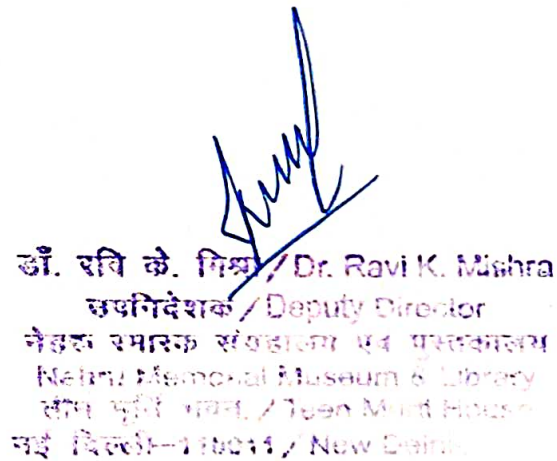 डॉ. रवि के. मिश्रा / Dr. Ravi K. Mishra
उपनिदेशक / Deputy Director
नेहरू स्मारक संग्रहालय एवं पुस्तकालय
Nehru Memorial Museum & Library
तीन मूर्ति भवन, / Teen Murti House
नई दिल्ली-110011 / New Delhi